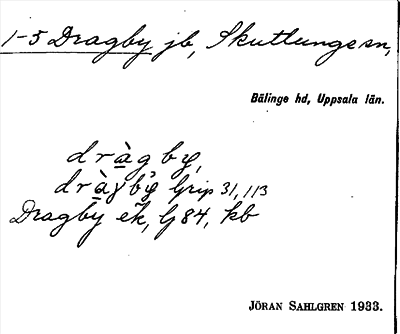 1-5 Dragby jb, Skutlunge sn,
Bälinge hd, Uppsala län.
dràgby,
dràɣby̆ Grip 31, 113
Dragby ek, G 84, kb
JÖRAN SAHLGREN 1933.